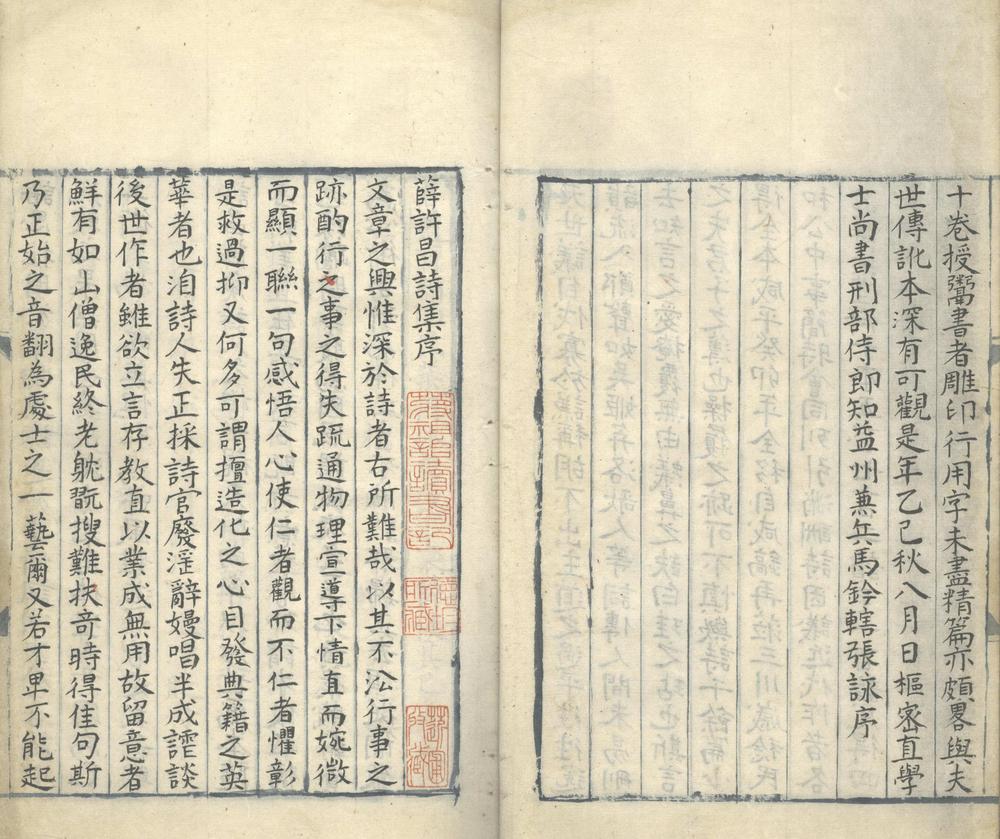 十卷授鬻書者雕印行用字未盡精篇亦頗畧與夫
世傳訛本深有可觀是年乙巳秋八月日樞密直學
士尚書刑部侍郎知益州蕪兵馬鈐轄張詠序
薛許昌詩集序
文章之興惟深於詩者古所難哉以其不沿行事之
跡酌行之事之得失疏通物理宣導下情直而婉微
而顯一聯一句感悟人心使仁者觀而不仁者懼彰
是救過抑又何多可謂擅造化之心目發典籍之英
華者也洎詩人失正採詩官廢淫辭嫚唱半成謔談
後世作者雖欲立言存教直以業成無用故留意者
鮮有如山僧逸民終老躭翫搜難抉奇時得佳句斯
乃正始之音翻為處士之一藝爾又若才卑不能起